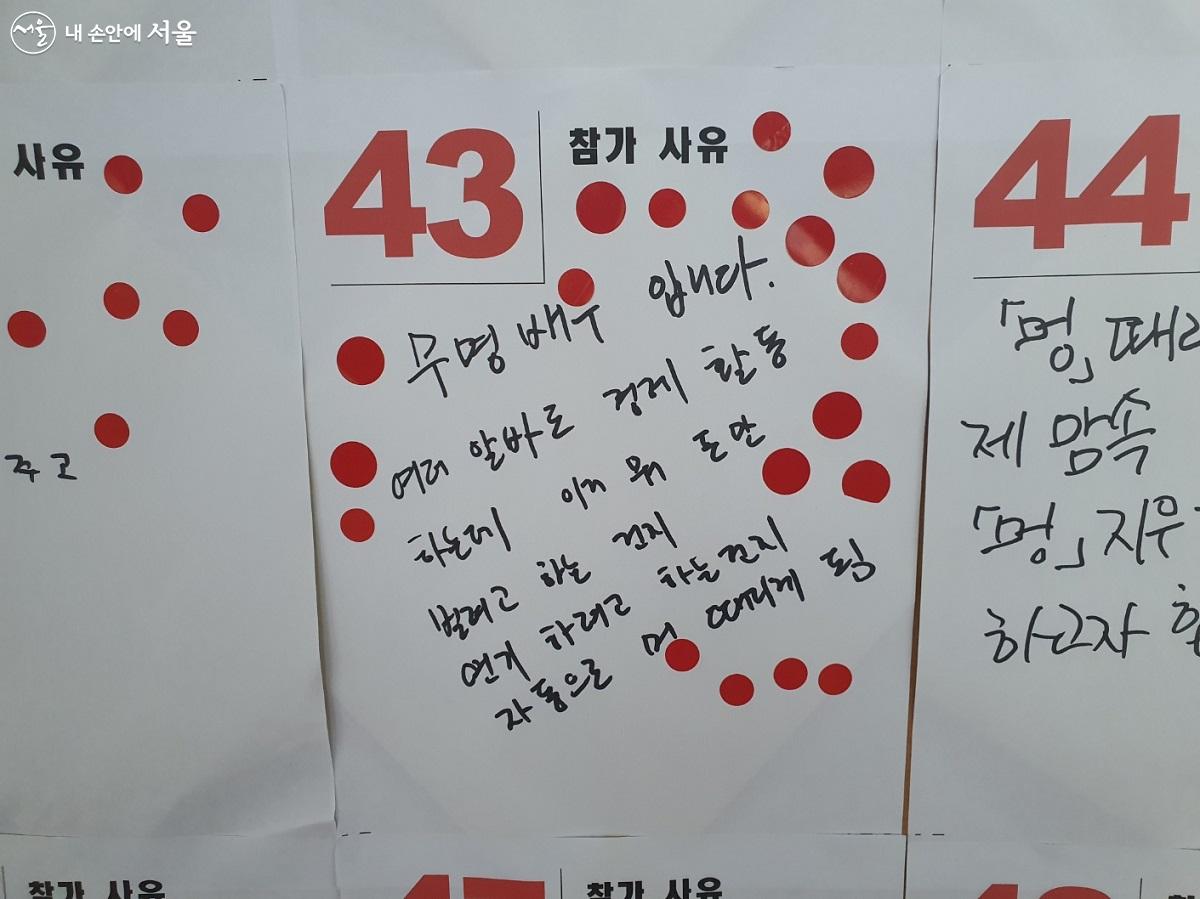 서울 내 손안에 서울
사유
주고
43
참가 사유
무명배우 입니다.
여러 알바로 경제 활동
하는데 이거 뭐 돈만
벌려고 하는 건지
연기 하려고 하는건지
자동으로 멍 때리게 됨
44
「멍」때리
제 맘속
「멍」지우
하고자
참가 사유
참가 사유